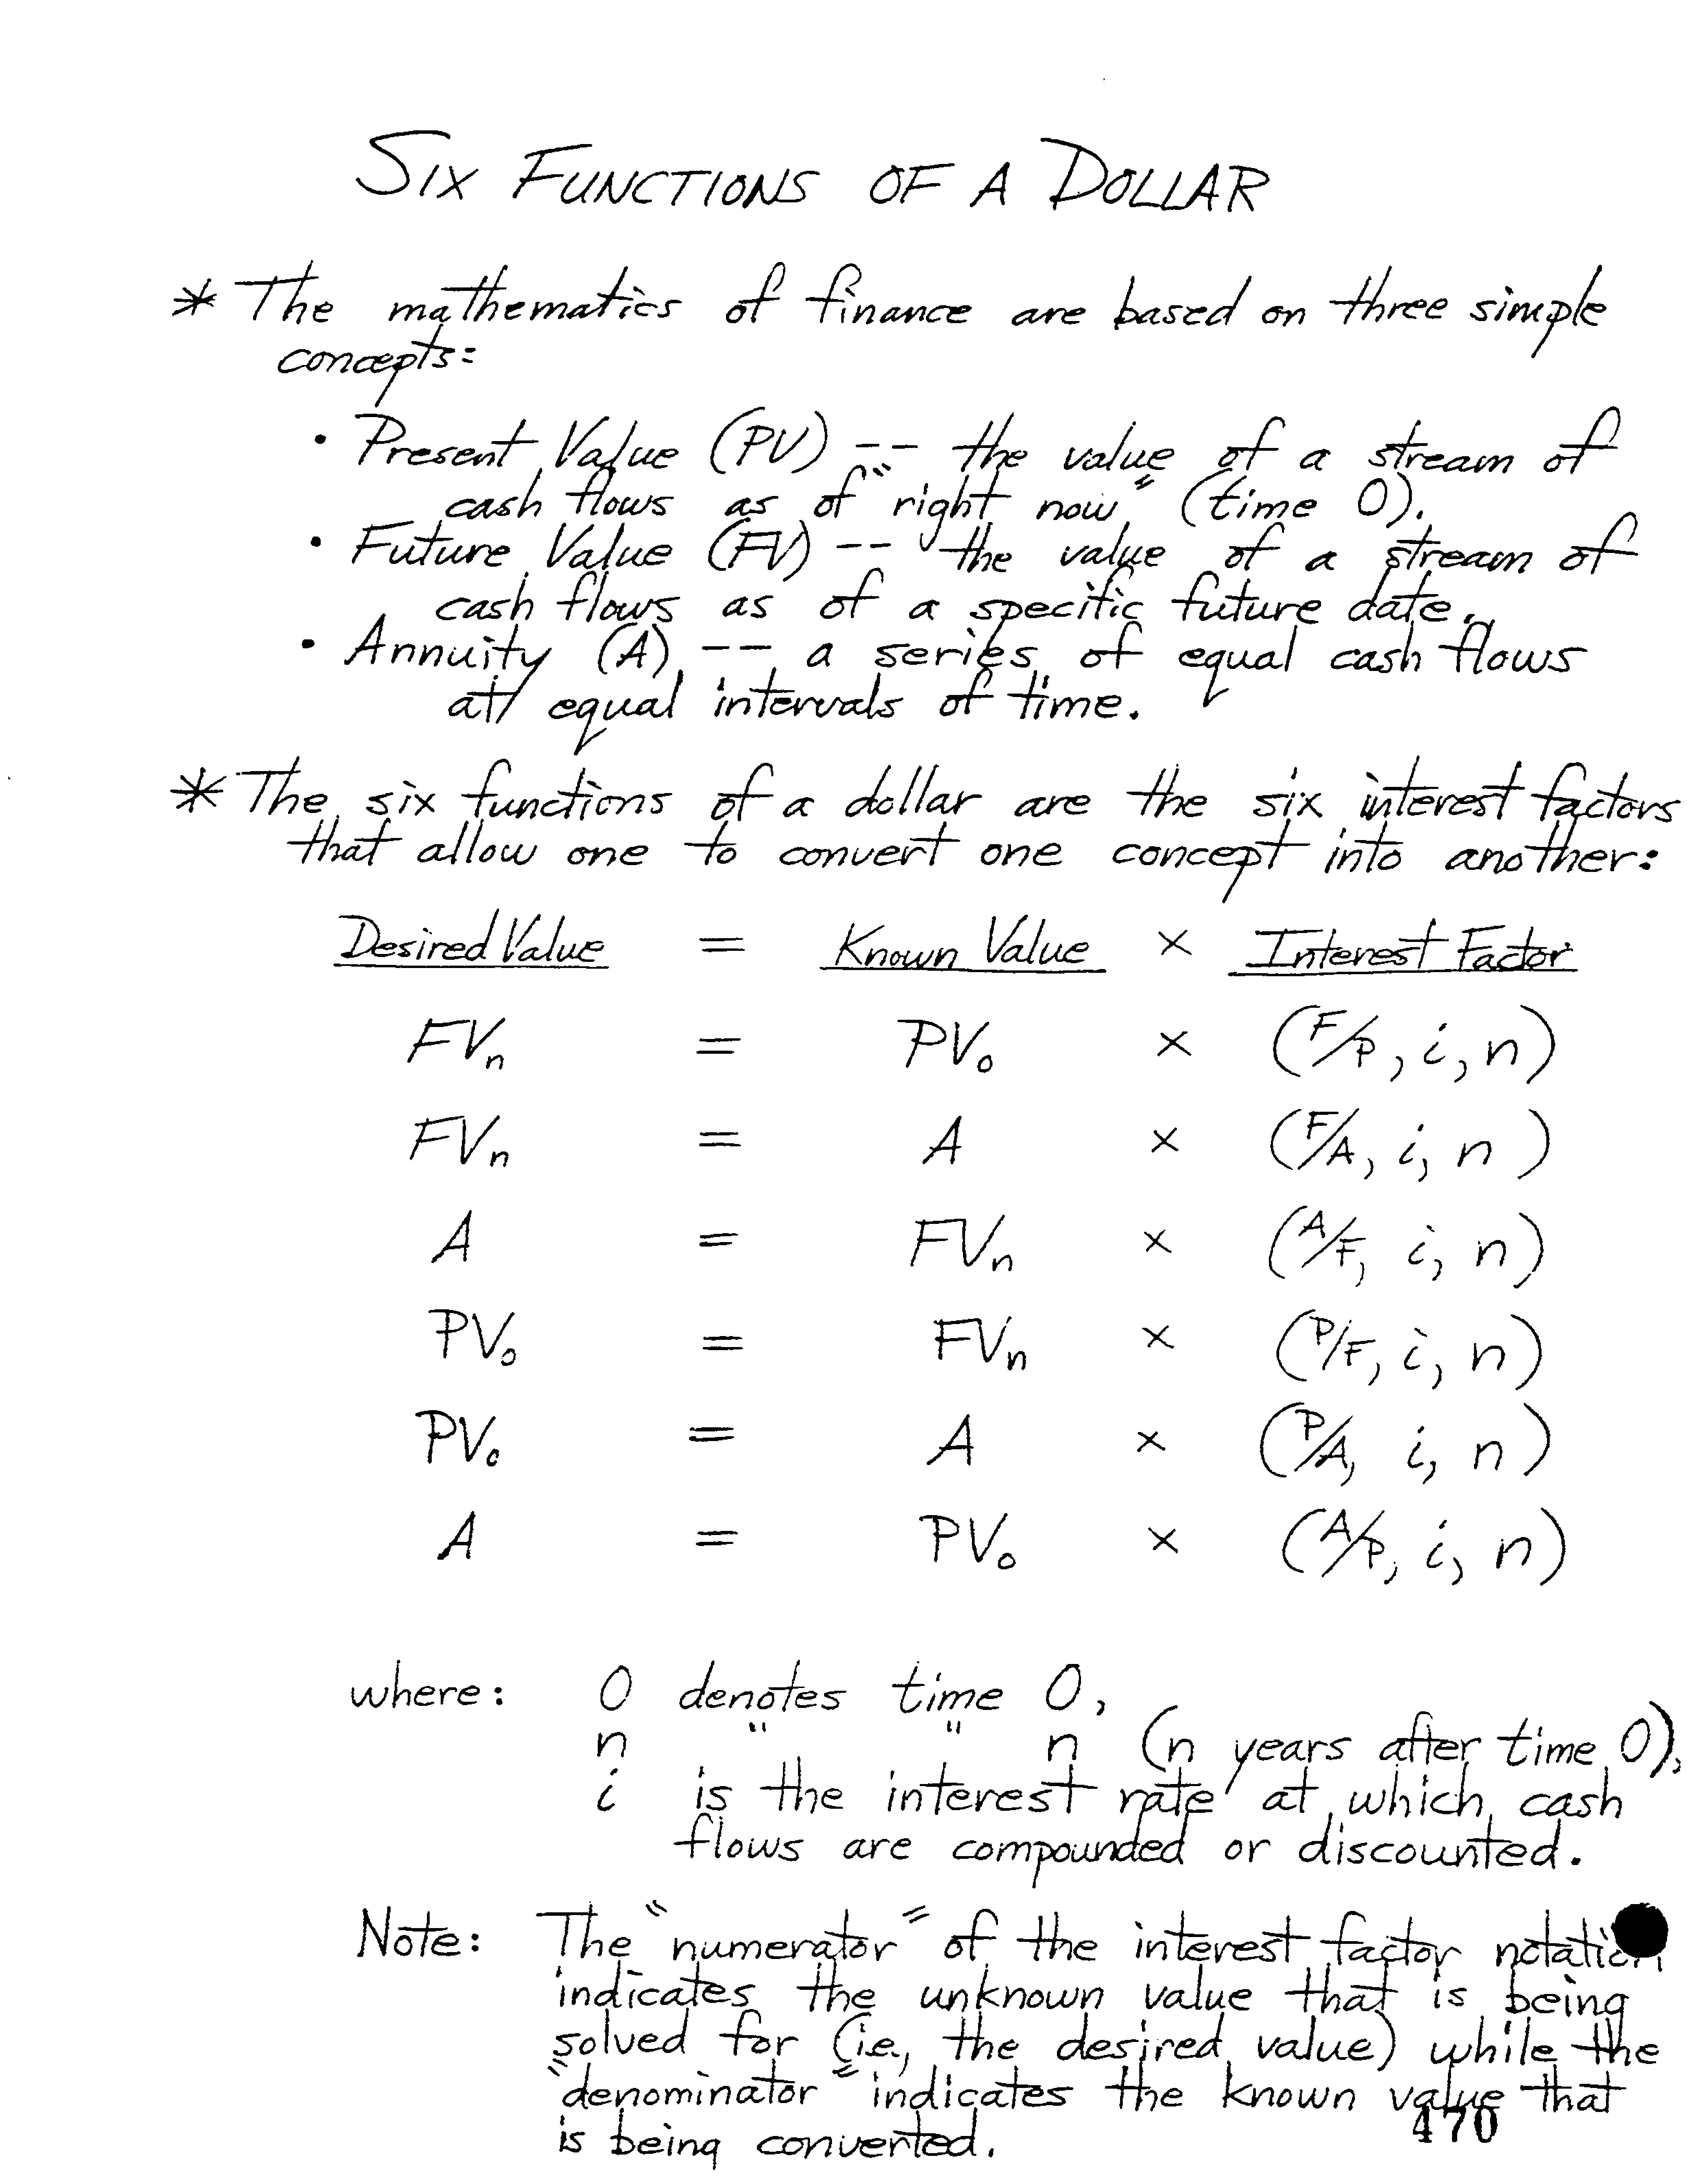 SIX FUNCTIONS OF A DOLLAR
* The mathematics of finance are based on three simple
concepts:
• Present Value (PV) -- the value of a stream of
cash flows as of "right now" (time 0).
• Future Value (FV) -- the value of a stream of
cash flows as of a specific future date.
• Annuity (A) -- a series of equal cash flows
at equal intervals of time.
* The six functions of a dollar are the six interest factors
that allow one to convert one concept into another:
Desired Value = Known Value × Interest Factor
FVn = PV0 × (F/P, i, n)
FVn = A × (F/A, i, n)
A = FVn × (A/F, i, n)
PV0 = FVn × (P/F, i, n)
PV0 = A × (P/A, i, n)
A = PV0 × (A/P, i, n)
where: 0 denotes time 0,
n " " n (n years after time 0),
i is the interest rate at which cash
flows are compounded or discounted.
Note: The "numerator" of the interest factor notation
indicates the unknown value that is being
solved for (i.e., the desired value) while the
"denominator" indicates the known value that
is being converted.
470